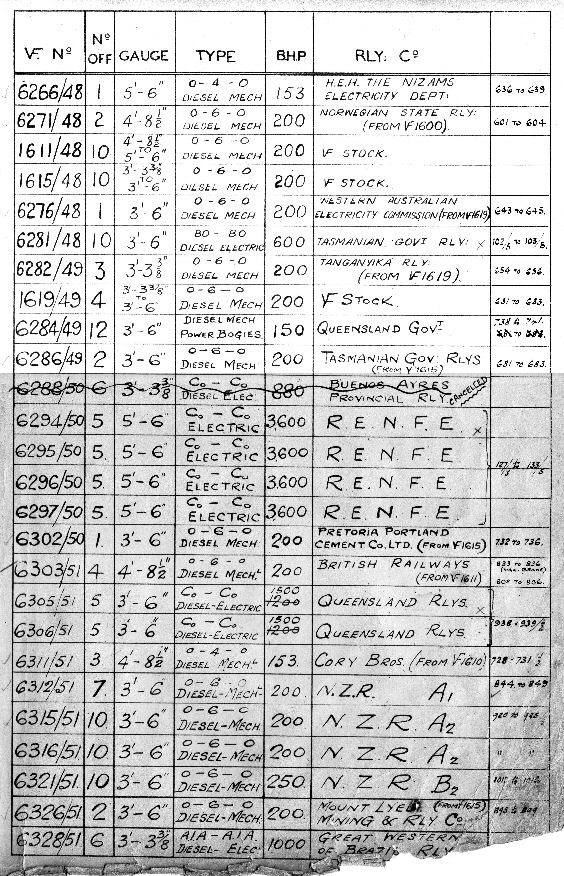 VF Nº Nº OFF GAUGE TYPE B.H.P RLY: Cº
6266/48 1 5'-6" 0-4-0 DIESEL MECH 153 H.E.H. THE NIZAMS ELECTRICITY DEPT: 636 to 639
6271/48 2 4'-8½" 0-6-0 DIESEL MECH 200 NORWEGIAN STATE RLY: (FROM VF1600). 601 to 604
1611/48 10 4'-8½" TO 5'-6" 0-6-0 DIESEL MECH 200 VF STOCK.
1615/48 10 3'-3⅜" TO 3'-6" 0-6-0 DIESEL MECH 200 VF STOCK.
6276/48 1 3'-6" 0-6-0 DIESEL MECH 200 WESTERN AUSTRALIAN ELECTRICITY COMMISSION (FROM VF1619) 643 to 645.
6281/48 10 3'-6" BO-BO DIESEL ELECTRIC 600 TASMANIAN GOVT RLY: x
6282/49 3 3'-3⅜" 0-6-0 DIESEL MECH 200 TANGANYIKA RLY: (FROM VF1619). 654 to 656.
1619/49 4 3'-3⅜" TO 3'-6" 0-6-0 DIESEL MECH 200 VF STOCK. 681 to 683.
6284/49 12 3'-6" DIESEL MECH POWER BOGIES 150 QUEENSLAND GOVT
6286/49 2 3'-6" 0-6-0 DIESEL MECH 200 TASMANIAN GOV: RLYS (FROM VF1615) 681 to 683.
6288/50 6 3'-3⅜" Co-Co DIESEL ELEC. 880 BUENOS AYRES PROVINCIAL RLY CANCELLED
6294/50 5 5'-6" Co-Co ELECTRIC 3,600 R.E.N.F.E x
6295/50 5. 5'-6" Co-Co ELECTRIC 3,600 R.E.N.F.E
6296/50 5. 5'-6" Co-Co ELECTRIC 3,600 R.E.N.F.E
6297/50 5. 5'-6" Co-Co ELECTRIC 3,600 R.E.N.F.E
6302/50 1. 3'-6" 0-6-0 DIESEL MECH. 200 PRETORIA PORTLAND CEMENT Co. LTD. (FROM VF1615) 732 to 736.
6303/51 4. 4'-8½" 0-6-0 DIESEL MECH.L 200 BRITISH RAILWAYS (FROM VF1611) 833 to 836
6305/51 5 3'-6" Co-Co DIESEL-ELECTRIC 1500 1200 QUEENSLAND RLYS. x
6306/51 5 3'-6" Co-Co DIESEL-ELECTRIC 1500 1200 QUEENSLAND RLYS.
6311/51 3. 4'-8½" 0-4-0 DIESEL MECH.L 153. CORY BROS. (FROM VF1610) 728-731
6312/51 7. 3'-6" 0-6-0 DIESEL-MECH.L 200. N.Z.R. A1 844 to 849
6315/51 10. 3'-6" 0-6-0 DIESEL-MECH. 200 N.Z.R A2
6316/51 10. 3'-6" 0-6-0 DIESEL-MECH. 200 N.Z.R A2 " "
6321/51 10 3'-6" 0-6-0 DIESEL-MECH. 250. N.Z.R. B2
6326/51 2 3'-6" 0-6-0 DIESEL-MECH 200. MOUNT LYELL (FROM VF1615) MINING & RLY Co
6328/51 6 3'-3⅜ A1A-A1A. DIESEL-ELEC. 1000 GREAT WESTERN OF BRAZIL RLY